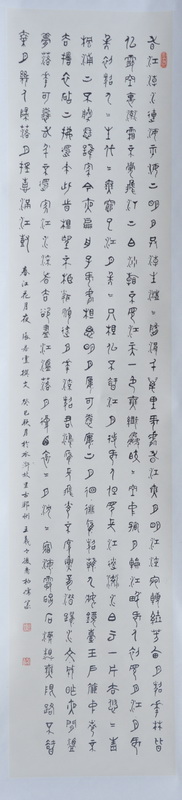 春江潮水連海平海上明月共潮生灩灩隨波千萬里何處春江無月明江流宛轉繞芳甸月照花林皆
似霰空裏流霜不覺飛汀上白沙看不見江天一色無纖塵皎皎空中孤月輪江畔何人初見月江月何年
初照人人生代代無窮已江月年年只相似不知江月待何人但見長江送流水白雲一片去悠悠青
楓浦上不勝愁誰家今夜扁舟子何處相思明月樓可憐樓上月徘徊應照離人妝鏡臺玉戶簾中卷不
去擣衣砧上拂還來此時相望不相聞願逐月華流照君鴻雁長飛光不度魚龍潛躍水成文昨夜閒潭
夢落花可憐春半不還家江水流春去欲盡江潭落月復西斜斜月沉沉藏海霧碣石瀟湘無限路不知
乘月幾人歸落月搖情滿江樹 春江花月夜 張若虛撰文 癸巳秋月於水滸故里古鄆州